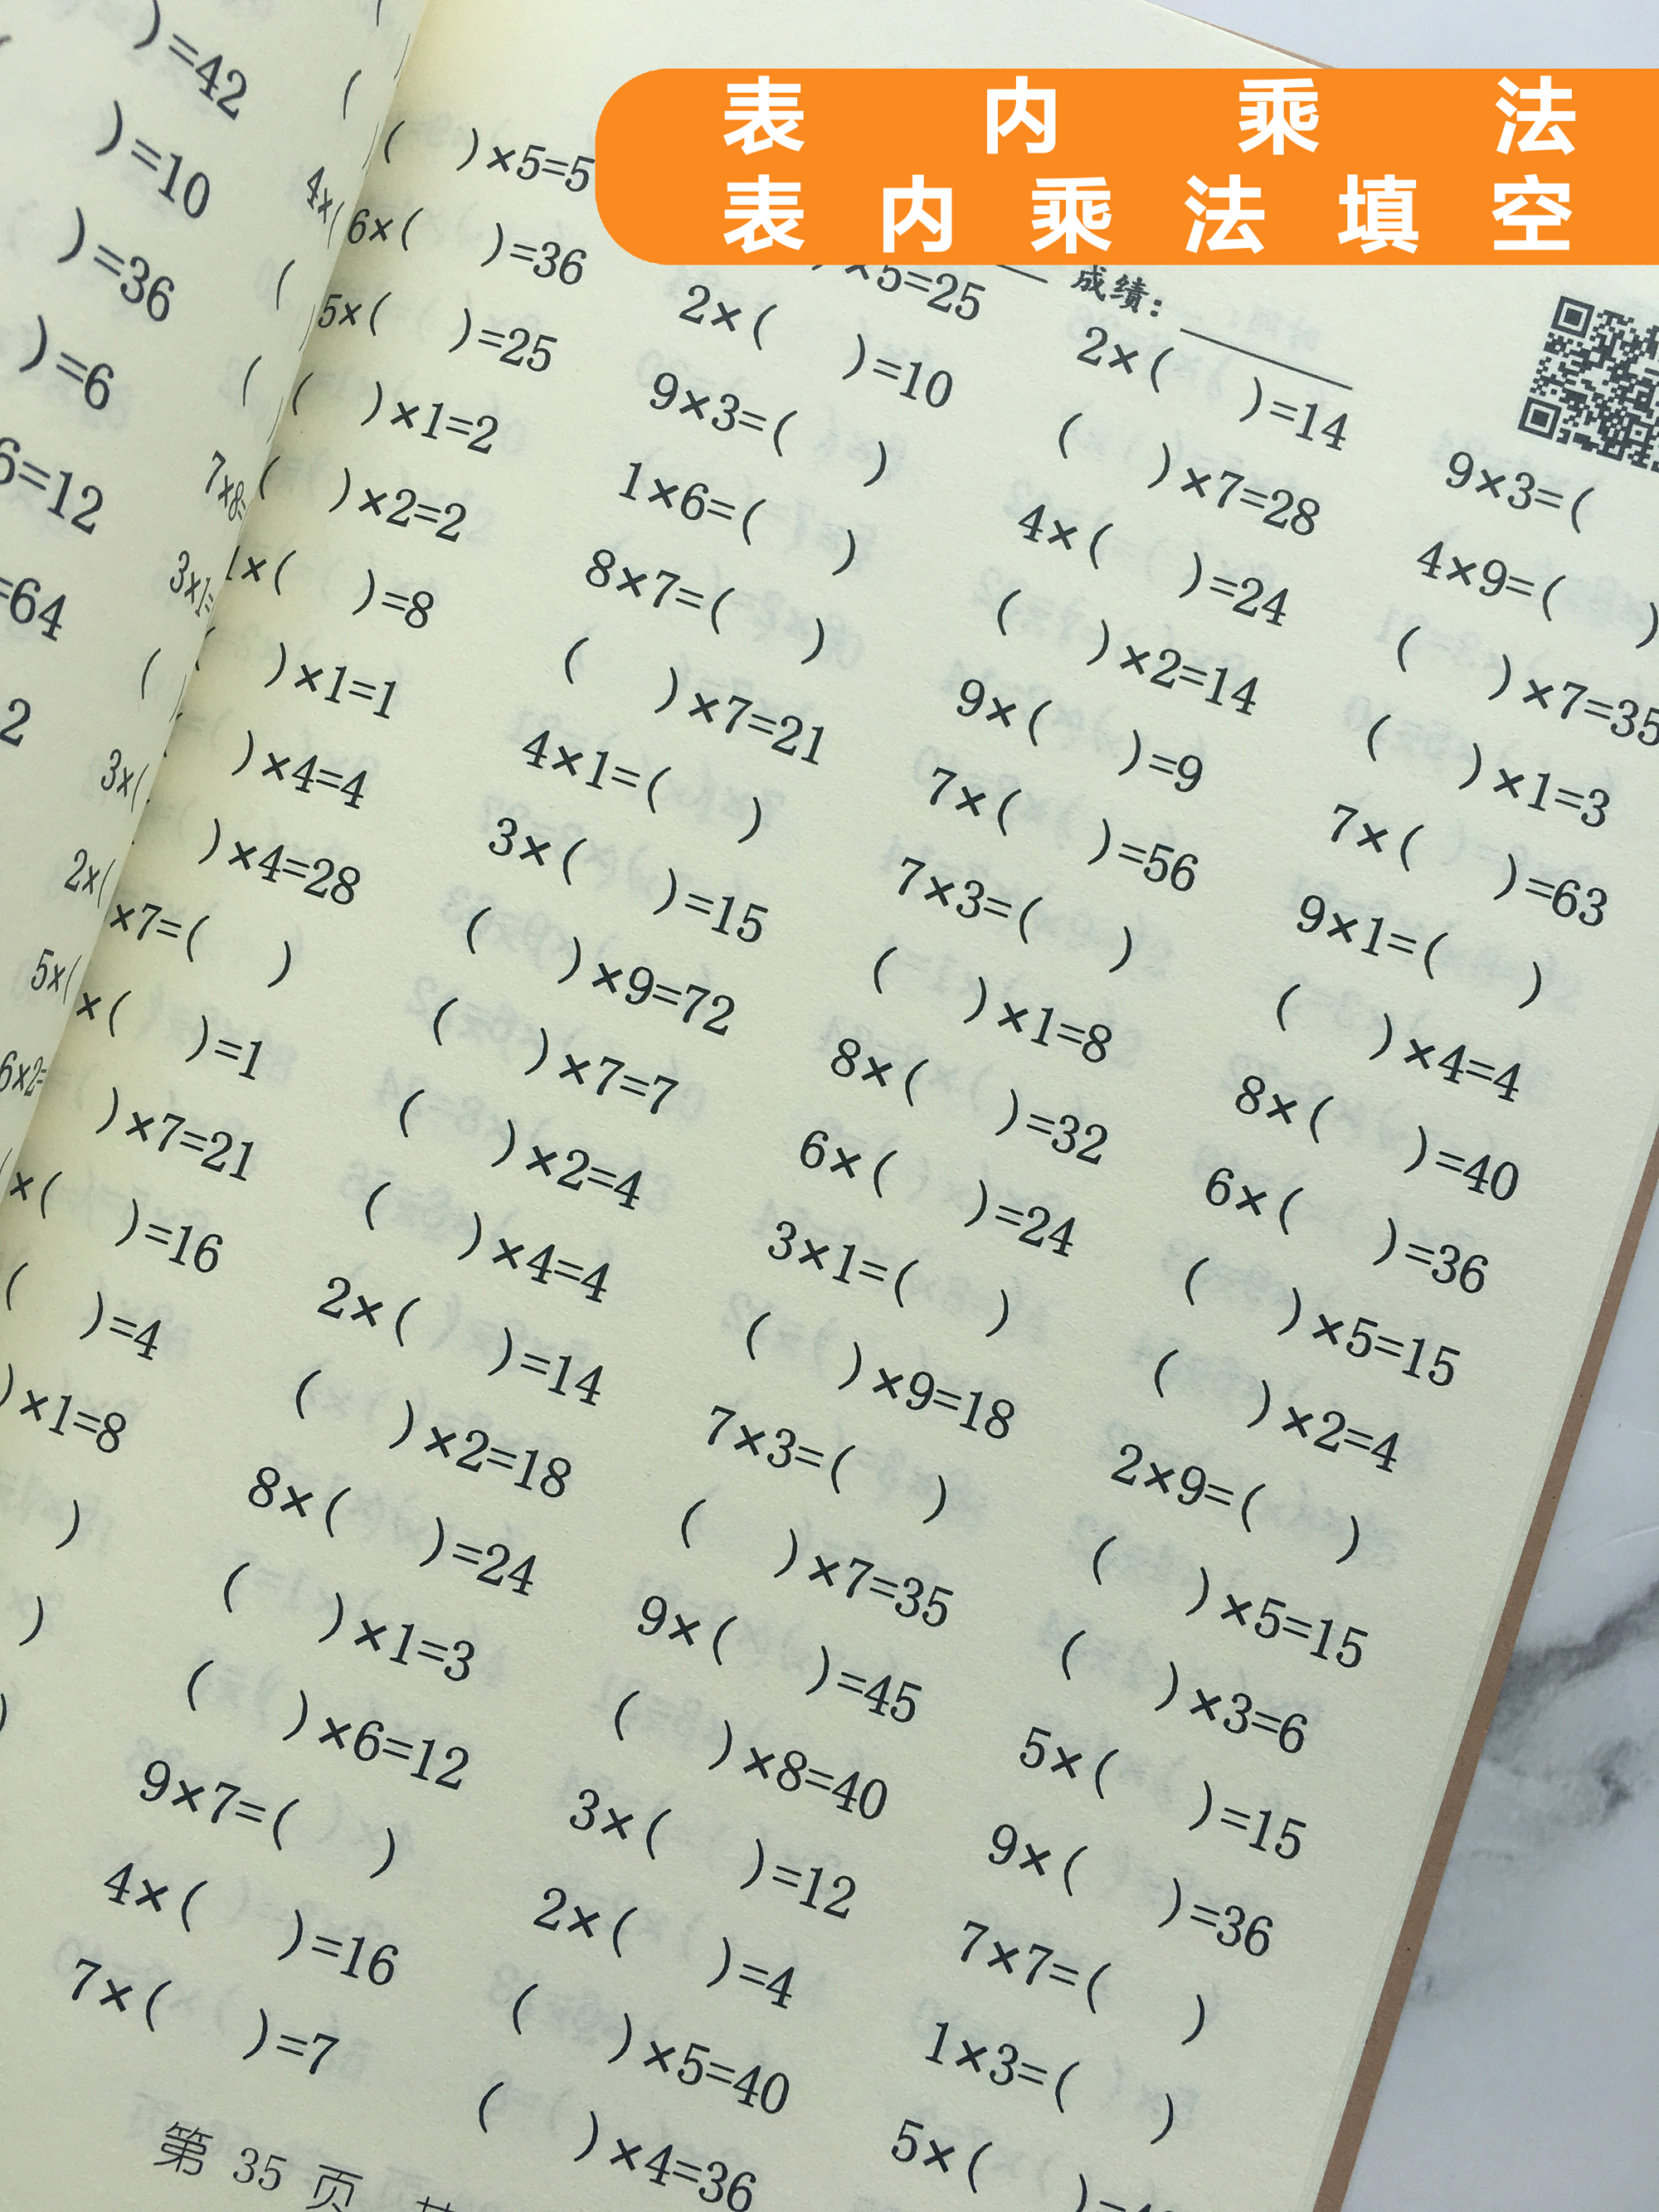 表内乘法
表内乘法填空
)=42
)=10
)=36
)=6
6=12
=64
2
4×(
7×8=
3×1=
3×(
2×(
5×(
6×2=
成绩:
(  )×5=5  )×5=25  2×(  )=14  9×3=(
6×(  )=36  2×(  )=10  (  )×7=28  4×9=(  )
5×(  )=25  9×3=(  )  4×(  )=24  (  )×7=35
(  )×1=2  1×6=(  )  (  )×2=14  (  )×1=3
(  )×2=2  8×7=(  )  9×(  )=9  7×(  )=63
×(  )=8  (  )×7=21  7×(  )=56  9×1=(  )
)×1=1  4×1=(  )  7×3=(  )  (  )×4=4
)×4=4  3×(  )=15  (  )×1=8  8×(  )=40
)×4=28  (  )×9=72  8×(  )=32  6×(  )=36
×7=(  )  (  )×7=7  6×(  )=24  (  )×5=15
×(  )=1  (  )×2=4  3×1=(  )  (  )×2=4
)×7=21  (  )×4=4  (  )×9=18  2×9=(  )
×(  )=16  2×(  )=14  7×3=(  )  (  )×5=15
(  )=4  (  )×2=18  (  )×7=35  (  )×3=6
)×1=8  8×(  )=24  9×(  )=45  5×(  )=15
)  (  )×1=3  (  )×8=40  9×(  )=36
)  (  )×6=12  3×(  )=12  7×7=(  )
)  9×7=(  )  2×(  )=4  1×3=(  )
4×(  )=16  (  )×5=40  5×(  )=
7×(  )=7  (  )×4=36
第 35 页